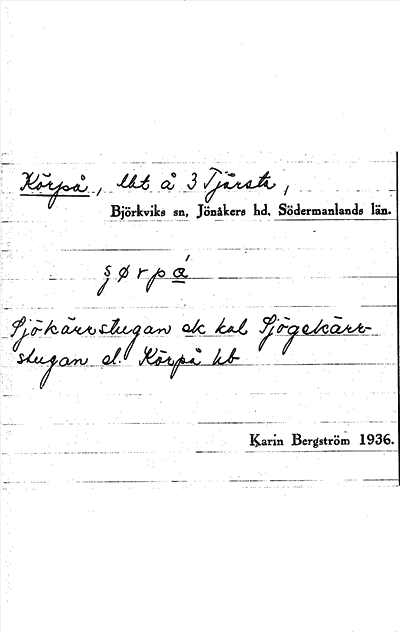 Körpå, lht å 3 Tjärsta,
Björkviks sn, Jönåkers hd, Södermanlands län.
Sjökärrstugan ek kal Sjögekärr-
stugan el. Körpå hb
Karin Bergström 1936.